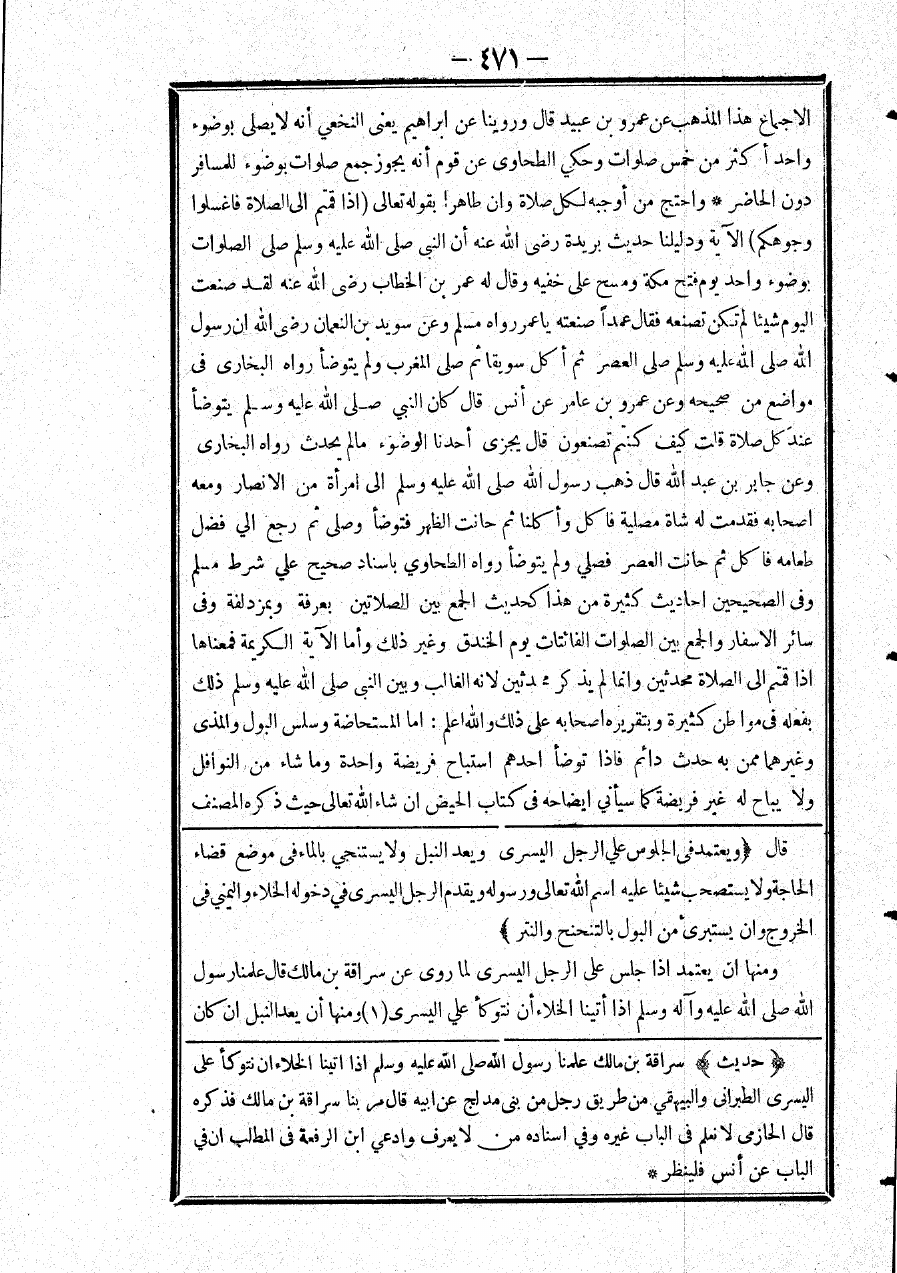 — ٤٧١ —
الاجماع هذا المذهب عن عمرو بن عبيد قال وروينا عن ابراهيم يعنى النخعي أنه لا يصلى بوضوء
واحد أكثر من خمس صلوات وحكي الطحاوى عن قوم أنه يجوز جمع صلوات بوضوء للمسافر
دون الحاضر * واحتج من أوجبه لكل صلاة وان طاهرا بقوله تعالى (اذا قمتم الى الصلاة فاغسلوا
وجوهكم) الآية ودليلنا حديث بريدة رضى الله عنه أن النبي صلى الله عليه وسلم صلى الصلوات
بوضوء واحد يوم فتح مكة ومسح على خفيه وقال له عمر بن الخطاب رضى الله عنه لقد صنعت
اليوم شيئا لم تكن تصنعه فقال عمداً صنعته ياعمر رواه مسلم وعن سويد بن النعمان رضى الله ان رسول
الله صلى الله عليه وسلم صلى العصر ثم أكل سويقا ثم صلى المغرب ولم يتوضأ رواه البخارى فى
مواضع من صحيحه وعن عمرو بن عامر عن أنس قال كان النبي صلى الله عليه وسلم يتوضأ
عند كل صلاة قلت كيف كنتم تصنعون قال يجزى أحدنا الوضوء مالم يحدث رواه البخارى
وعن جابر بن عبد الله قال ذهب رسول الله صلى الله عليه وسلم الى امرأة من الانصار ومعه
اصحابه فقدمت له شاة مصلية فاكل وأكلنا ثم حانت الظهر فتوضأ وصلى ثم رجع الي فضل
طعامه فاكل ثم حانت العصر فصلي ولم يتوضأ رواه الطحاوي باسناد صحيح علي شرط مسلم
وفى الصحيحين احاديث كثيرة من هذا كحديث الجمع بين الصلاتين بعرفة وبمزدلفة وفى
سائر الاسفار والجمع بين الصلوات الفائتات يوم الخندق وغير ذلك وأما الآية الكريمة فمعناها
اذا قمتم الى الصلاة محدثين وانما لم يذكر محدثين لانه الغالب وبين النبي صلى الله عليه وسلم ذلك
بفعله فى مواطن كثيرة وبتقريره اصحابه على ذلك والله اعلم : اما المستحاضة وسلس البول والمذى
وغيرهما ممن به حدث دائم فاذا توضأ احدهم استباح فريضة واحدة وما شاء من النوافل
ولا يباح له غير فريضة كما سيأتي ايضاحه فى كتاب الحيض ان شاء الله تعالى حيث ذكره المصنف
قال ﴿ويعتمد فى الجلوس علي الرجل اليسرى ويعد النبل ولا يستنجي بالماء فى موضع قضاء
الحاجة ولا يستصحب شيئا عليه اسم الله تعالى ورسوله ويقدم الرجل اليسرى في دخوله الخلاء واليمني فى
الخروج وان يستبرئ من البول بالتنحنح والنتر﴾
ومنها ان يعتمد اذا جلس على الرجل اليسرى لما روى عن سراقة بن مالك قال علمنا رسول
الله صلى الله عليه وآله وسلم اذا أتينا الخلاء أن نتوكأ علي اليسرى (١) ومنها أن يعد النبل ان كان
﴿حديث﴾ سراقة بن مالك علمنا رسول الله صلى الله عليه وسلم اذا اتينا الخلاء ان نتوكأ على
اليسرى الطبرانى والبيهقي من طريق رجل من بنى مدلج عن ابيه قال مر بنا سراقة بن مالك فذكره
قال الحازمى لا نعلم فى الباب غيره وفي اسناده من لا يعرف وادعي ابن الرفعة فى المطلب ان في
الباب عن أنس فلينظر *